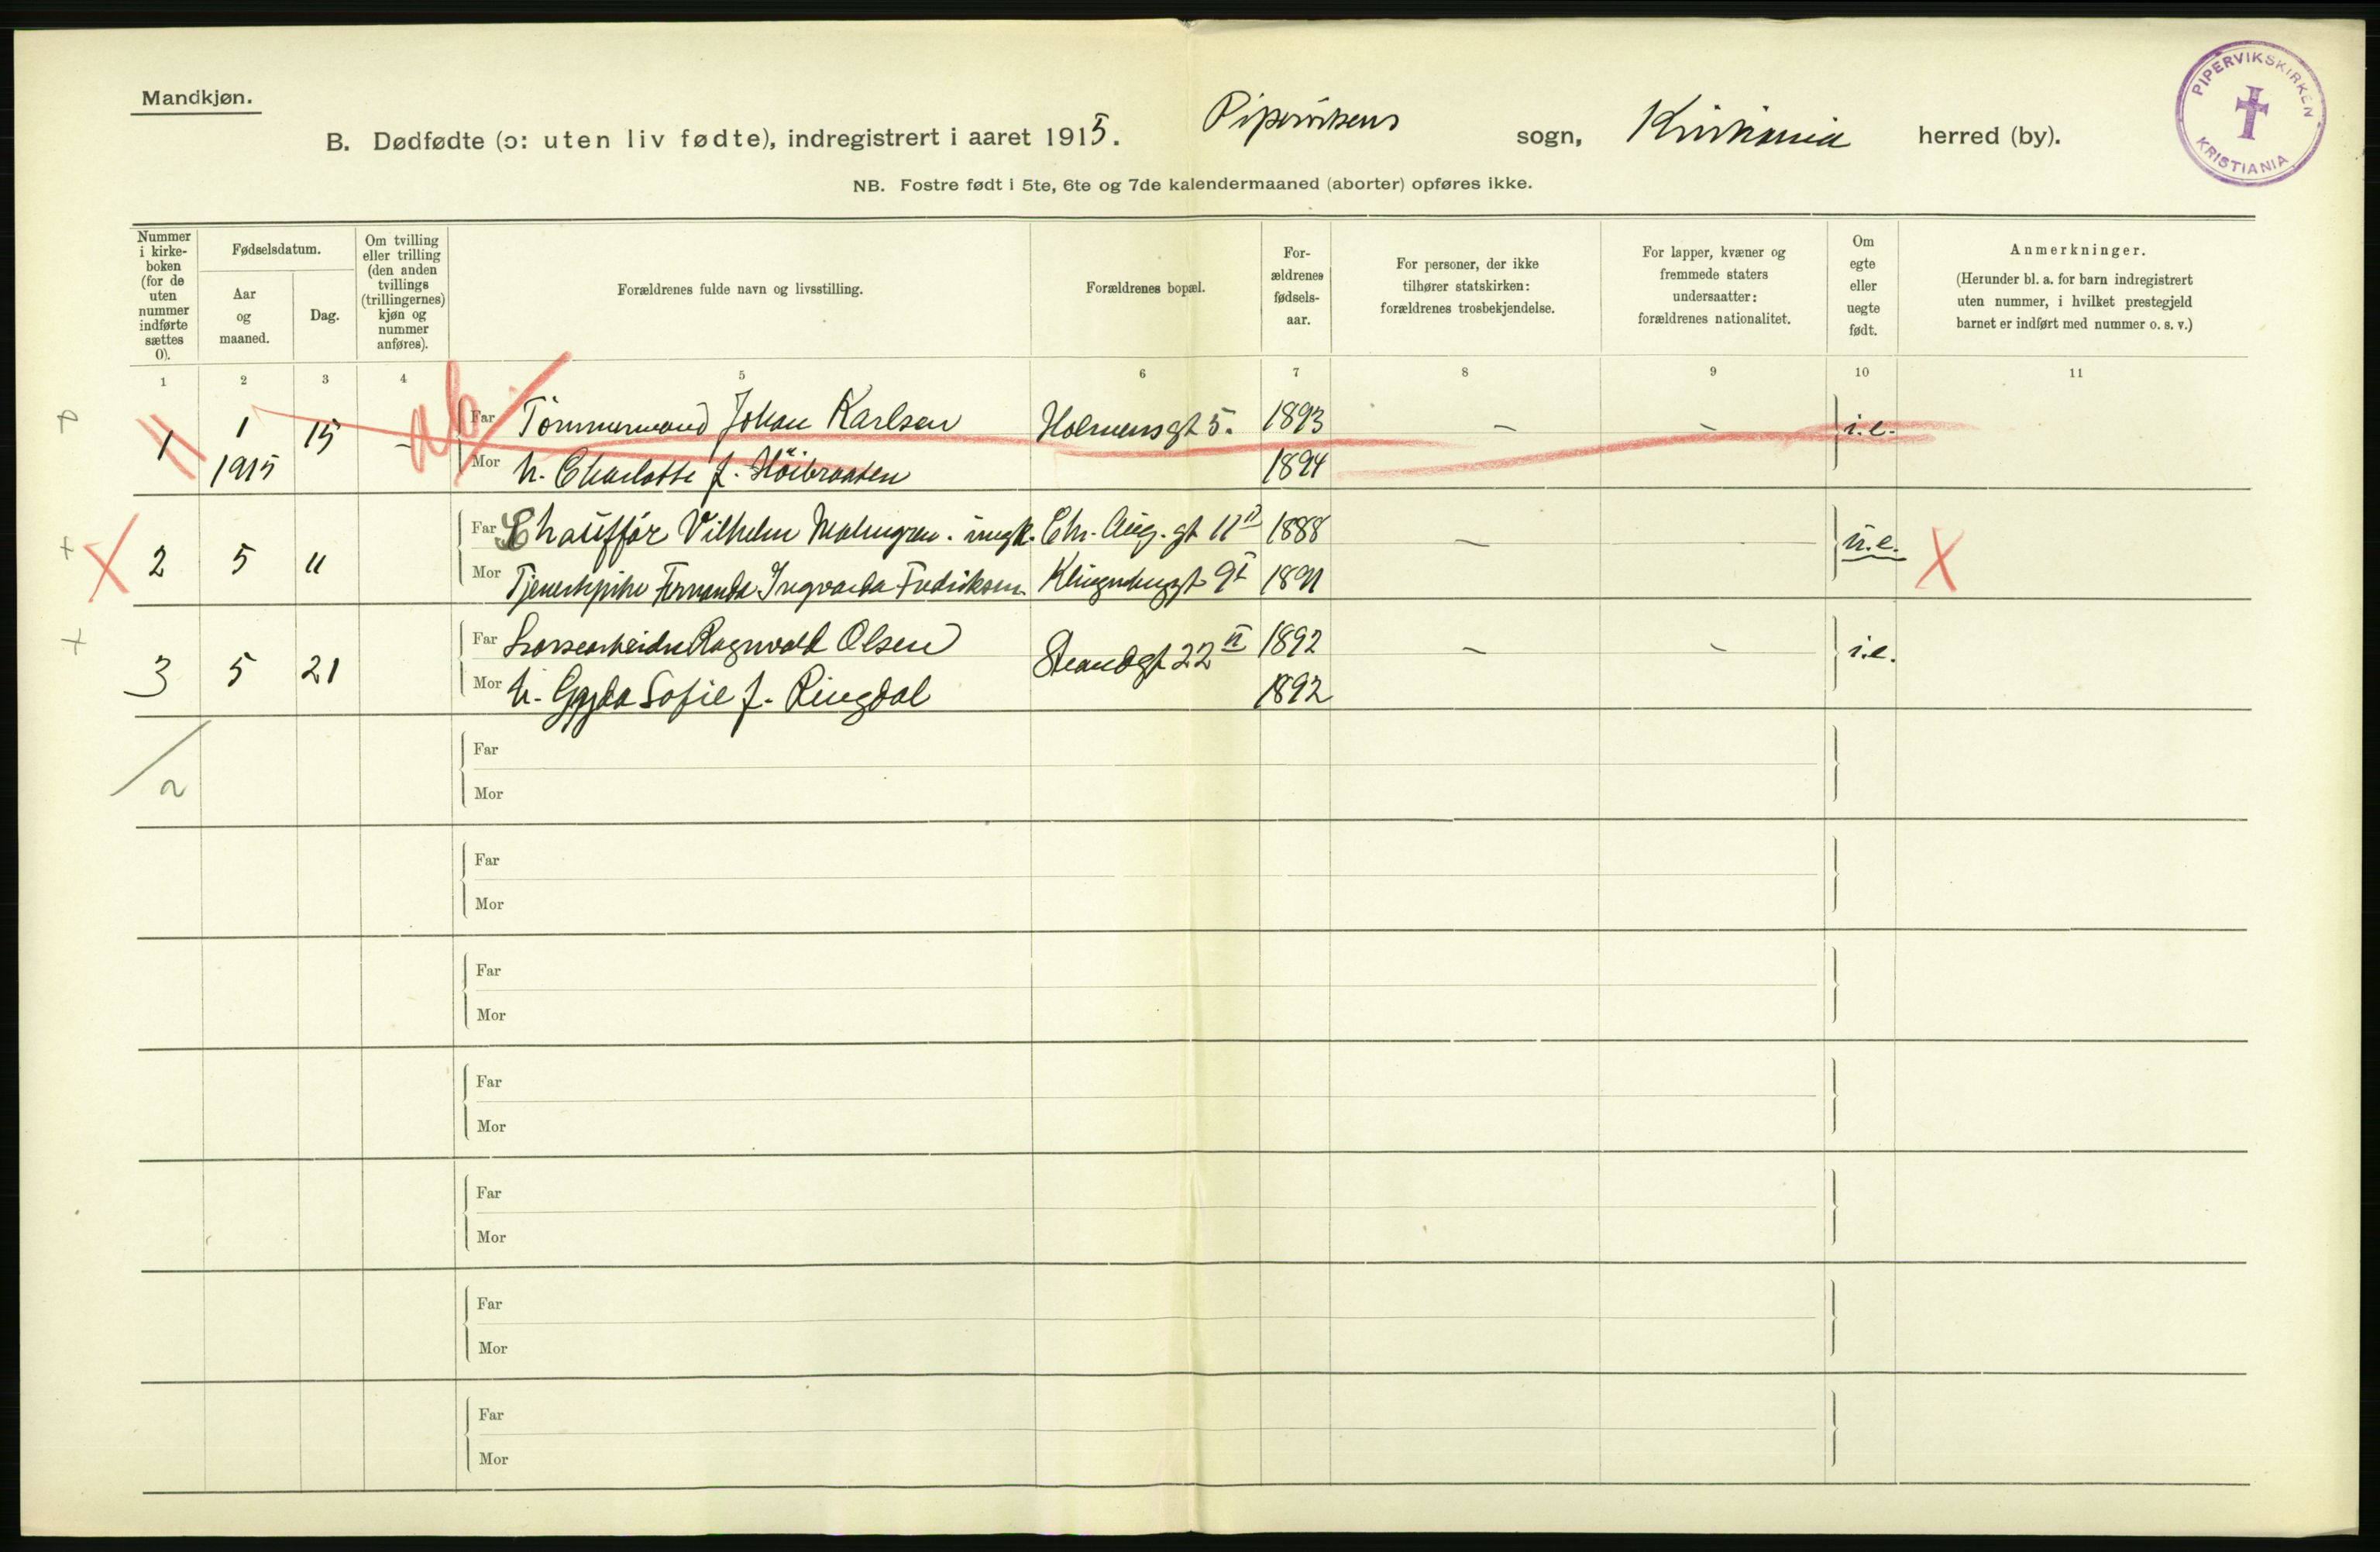 Mandkjøn.
B. Dødfødte (ɔ: uten liv fødte), indregistrert i aaret 1915. Pipervikens sogn, Kristiania herred (by).
PIPERVIKSKIRKEN KRISTIANIA
NB. Fostre født i 5te, 6te og 7de kalendermaaned (aborter) opføres ikke.
Nummer i kirke-boken (for de uten nummer indførte sættes 0).
Fødselsdatum.
Aar og maaned.
Dag.
Om tvilling eller trilling (den anden tvillings (trillingernes) kjøn og nummer anføres).
Forældrenes fulde navn og livsstilling.
Forældrenes bopæl.
For-ældrenes fødsels-aar.
For personer, der ikke tilhører statskirken: forældrenes trosbekjendelse.
For lapper, kvæner og fremmede staters undersaatter: forældrenes nationalitet.
Om egte eller uegte født.
Anmerkninger.
(Herunder bl. a. for barn indregistrert uten nummer, i hvilket prestegjeld barnet er indført med nummer o. s. v.)
1 2 3 4 5 6 7 8 9 10 11
ab
1 1 15 – Far Tömmermand Johan Karlsen Holmensgt 5. 1893 – – i.e.
1915 Mor h. Charlotte f. Höibraaten 1894
X 2 5 11 Far Chauffør Vilhelm Malmgren. ungk. Chr. Aug. gt 11 II 1888 – u.e. X
Mor Tjenestepike Fernanda Ingvarda Fredriksen Klingenberggt 9 I 1891
3 5 21 Far Ragnvald Olsen Strandgt 22 II 1892 – – i.e.
Mor h. Gyda Sofie f. Ringdal 1892
/2
Far
Mor
Far
Mor
Far
Mor
Far
Mor
Far
Mor
Far
Mor
Far
Mor